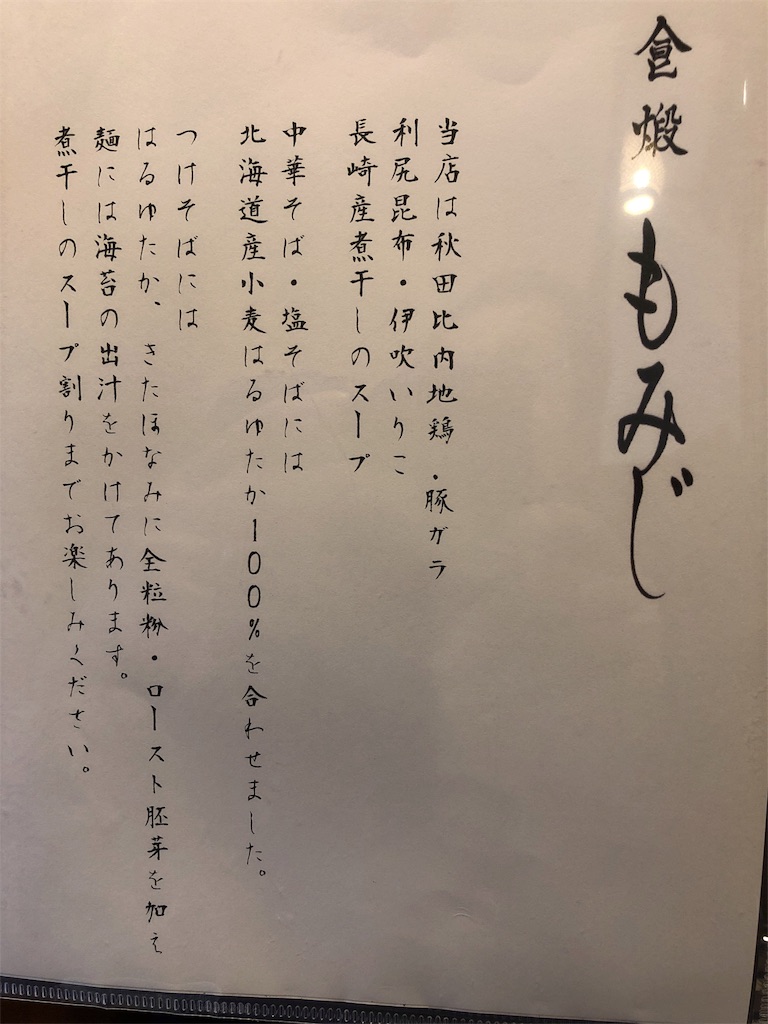 食煅 もみじ
当店は秋田比内地鶏・豚ガラ
利尻昆布・伊吹いりこ
長崎産煮干しのスープ
中華そば・塩そばには
北海道産小麦はるゆたか100%を合わせました。
つけそばには
はるゆたか、きたほなみに全粒粉・ロースト胚芽を加え
麺には海苔の出汁をかけてあります。
煮干しのスープ割りまでお楽しみください。